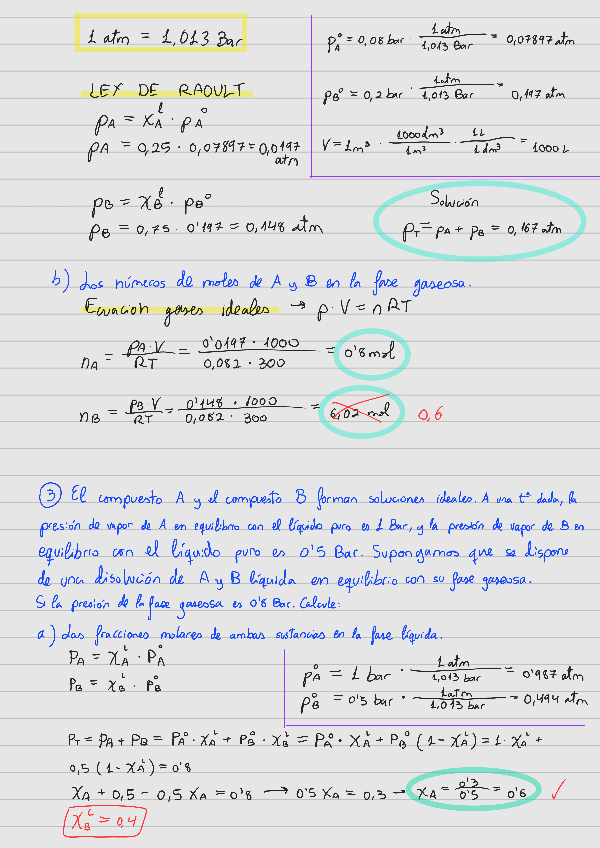 1 atm = 1,013 Bar
LEY DE RAOULT
pA = χA^l · pA°
pA = 0,25 · 0,07897 = 0,0197 atm
pA° = 0,08 bar · 1 atm / 1,013 Bar = 0,07897 atm
pB° = 0,2 bar · 1 atm / 1,013 Bar = 0,197 atm
V = 1 m³ · 1000 dm³ / 1 m³ · 1L / 1 dm³ = 1000 L
pB = χB^l · pB°
pB = 0,75 · 0'197 = 0,148 atm
Solución
pT = pA + pB = 0,167 atm
b) Los números de moles de A y B en la fase gaseosa.
Ecuacion gases ideales → p · V = nRT
nA = pA · V / RT = 0'0197 · 1000 / 0,082 · 300 = 0'8 mol
nB = pB V / RT = 0'148 · 1000 / 0,082 · 300 = 6,02 mol 0,6
③ El compuesto A y el compuesto B forman soluciones ideales. A una tª dada, la
presión de vapor de A en equilibrio con el líquido puro es 1 Bar, y la presión de vapor de B en
equilibrio con el líquido puro es 0'5 Bar. Supongamos que se dispone
de una disolución de A y B líquida en equilibrio con su fase gaseosa.
Si la presión de la fase gaseosa es 0'8 Bar. Calcule:
a) Las fracciones molares de ambas sustancias en la fase líquida.
PA = χA^l · PA°
PB = χB^l · PB°
pA° = 1 bar · 1 atm / 1,013 bar = 0'987 atm
pB° = 0'5 bar · 1 atm / 1,013 bar = 0,494 atm
PT = PA + PB = PA° · χA^l + PB° · χB^l = PA° · χA^l + PB° (1 - χA^l) = 1 · χA^l +
0,5 (1 - χA^l) = 0'8
χA + 0,5 - 0,5 χA = 0'8 → 0'5 χA = 0,3 → χA = 0'3 / 0'5 = 0'6 ✓
χB^l = 0,4